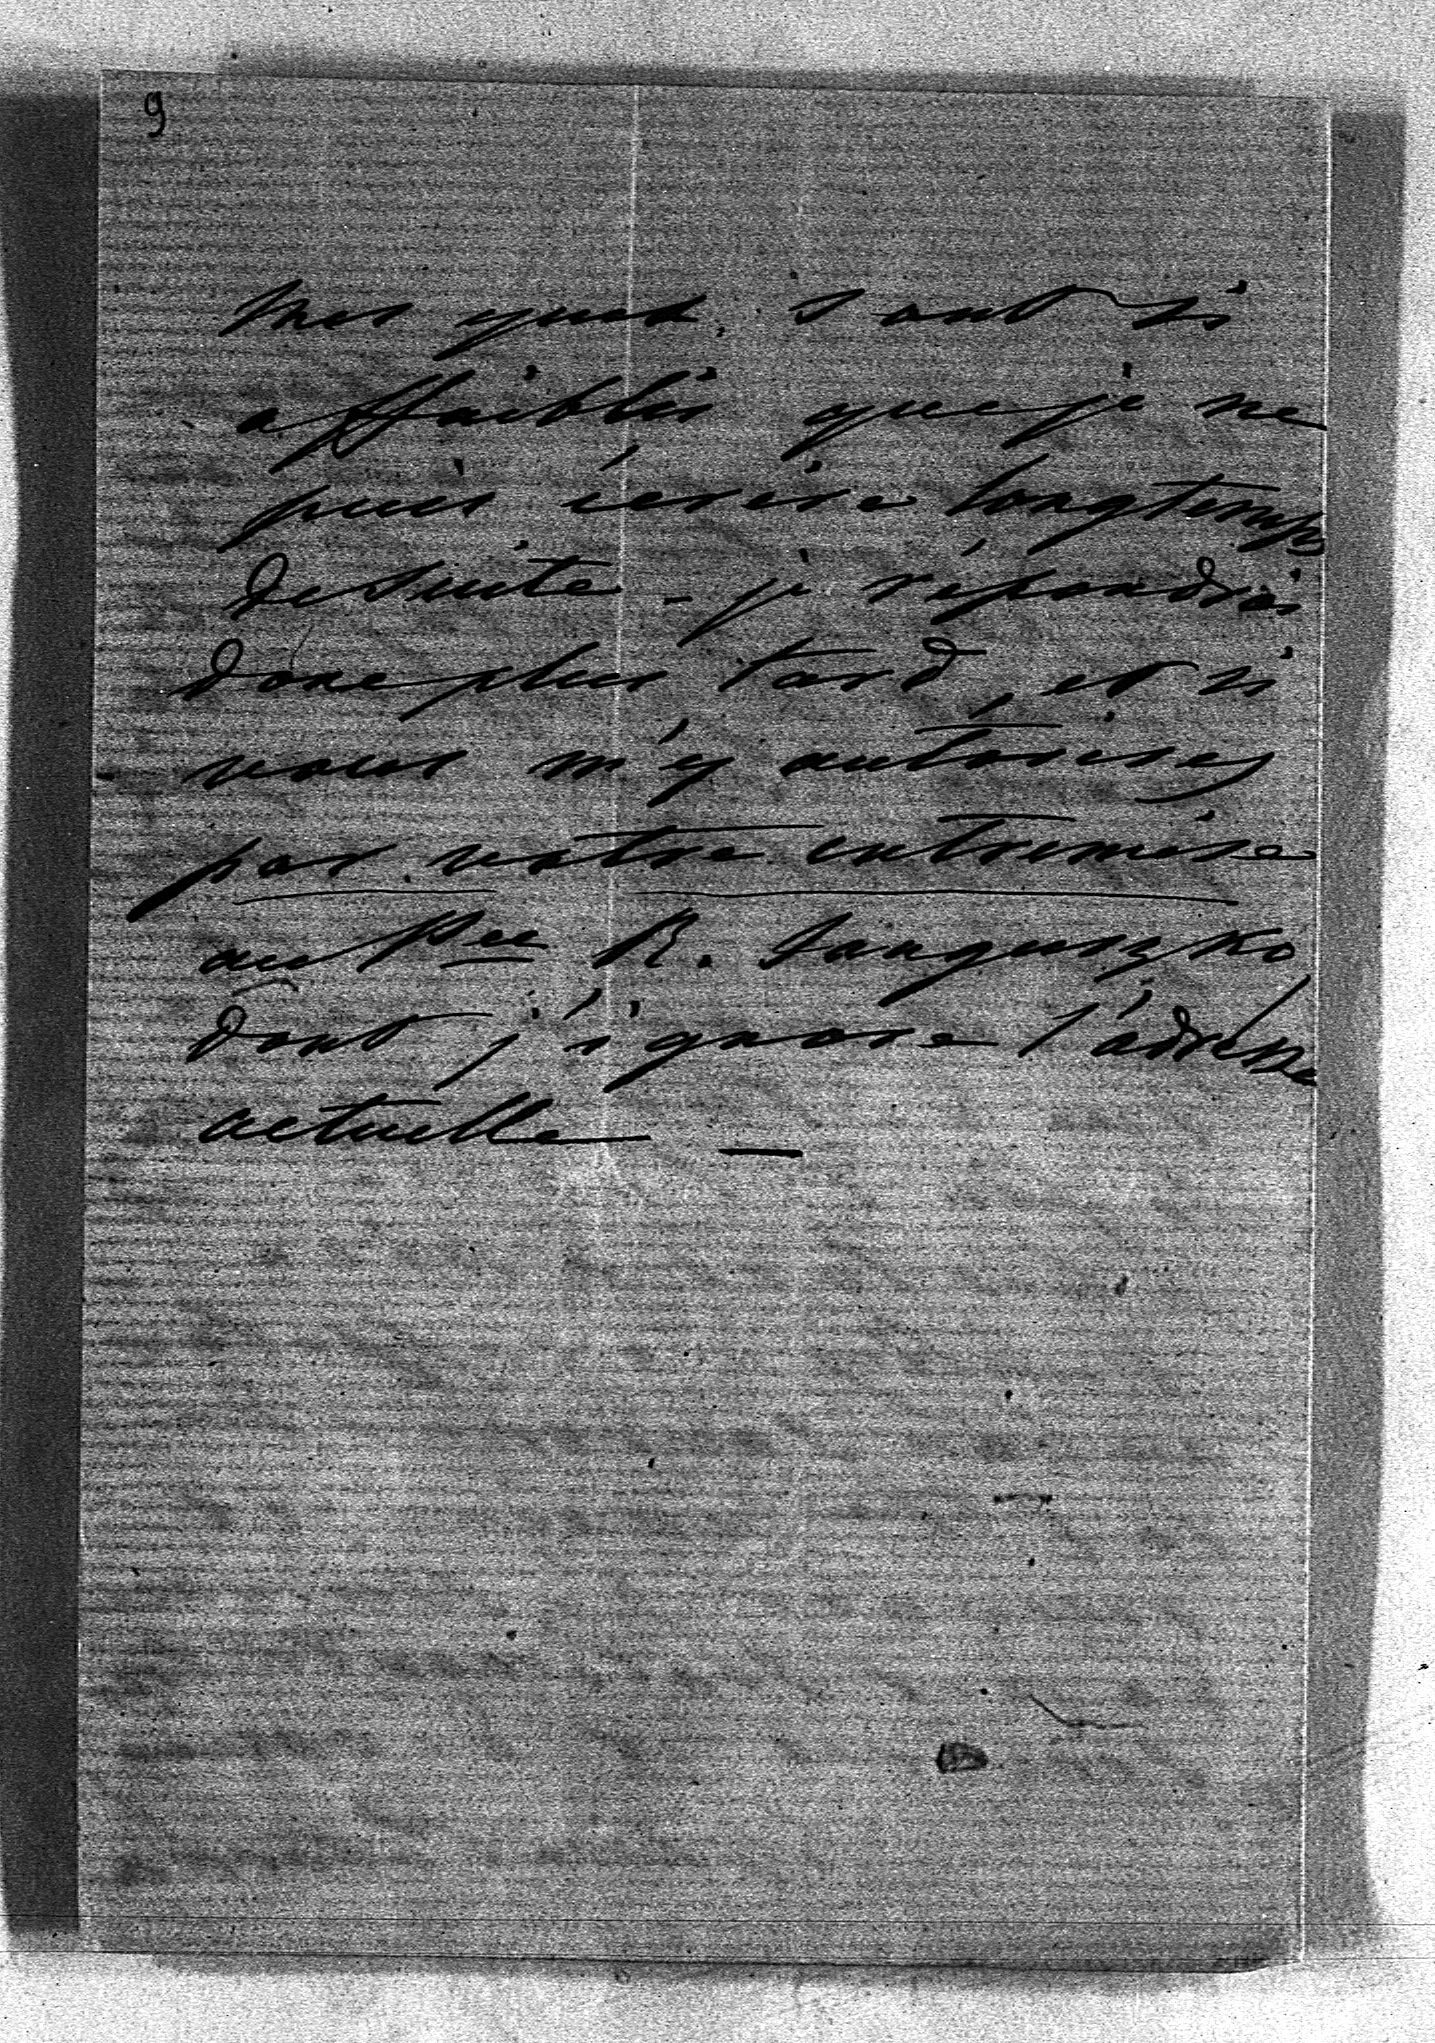 9
Mes yeux sont si
affaiblis que je ne
puis écrire longtemps
de suite - je répondrai
donc plus tard, et si
vous m'y autorisez
par votre entremise
au Pce R. Sanguszko
dont j'ignore l'adresse
actuelle —